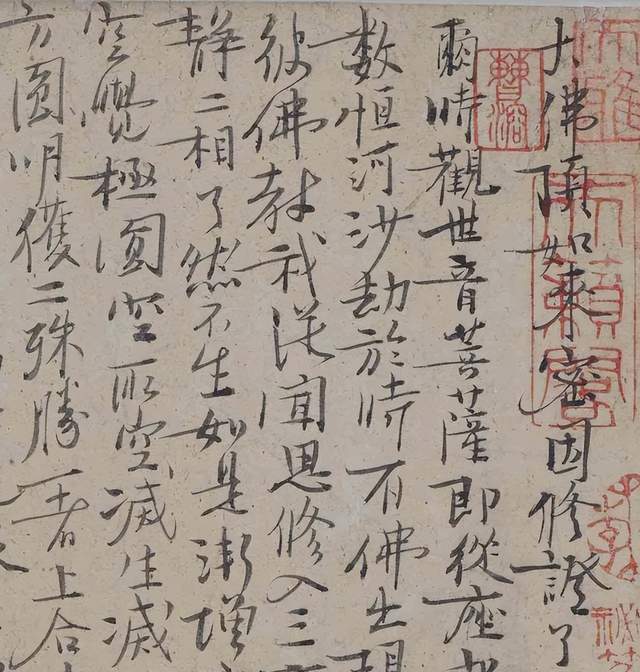 大佛頂如來密因修證了
爾時觀世音菩薩即從座
數恒河沙劫於時有佛出現
彼佛教我從聞思修入三
静二相了然不生如是漸增
空覺極圓空所空滅生滅
方圓明獲二殊勝一者上合
曹溶
天籟閣